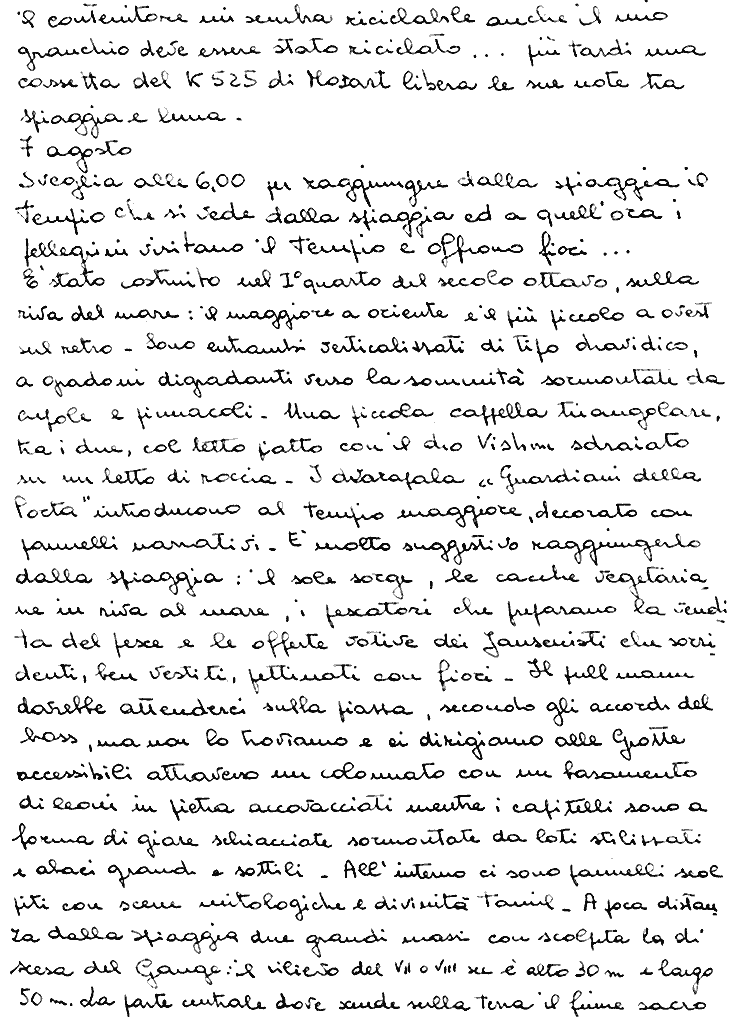 il contenitore mi sembra riciclabile anche il mio
granchio deve essere stato riciclato ... più tardi una
cassetta del K 525 di Mozart libera le sue note tra
spiaggia e luna.
7 agosto
Sveglia alle 6,00 per raggiungere dalla spiaggia il
Tempio che si vede dalla spiaggia ed a quell'ora i
pellegrini visitano il Tempio e offrono fiori ...
E' stato costruito nel I° quarto del secolo ottavo, sulla
riva del mare: il maggiore a oriente e il più piccolo a ovest
sul retro - Sono entrambi verticalizzati di tipo dravidico,
a gradoni digradanti verso la sommità sormontate da
cupole e pinnacoli - Una piccola cappella triangolare,
tra i due, col letto fatto con il dio Vishnu sdraiato
su un letto di roccia - I dvarapala "Guardiani della
Porta" introducono al Tempio maggiore, decorato con
pannelli narrativi. E' molto suggestivo raggiungerlo
dalla spiaggia: il sole sorge, le cacche vegetaria
ne in riva al mare, i pescatori che preparano la vendi
ta del pesce e le offerte votive dei Jansenisti che sorri
denti, ben vestiti, pettinati con fiori - Il pullmann
darebbe attenderci sulla piazza, secondo gli accordi del
boss, ma non lo troviamo e ci dirigiamo alle Grotte
accessibili attraverso un colonnato con un basamento
di leoni in pietra accovacciati mentre i capitelli sono a
forma di giare schiacciate sormontate da loti stilizzati
e abaci grandi e sottili - All'interno ci sono pannelli scol
piti con scene mitologiche e divinità Tamil - A poca distan
za dalla spiaggia due grandi massi con scolpita la di
scesa del Gange: il rilievo del VII o VIII sec è alto 30 m e largo
50 m. La parte centrale dove scende sulla terra il fiume sacro